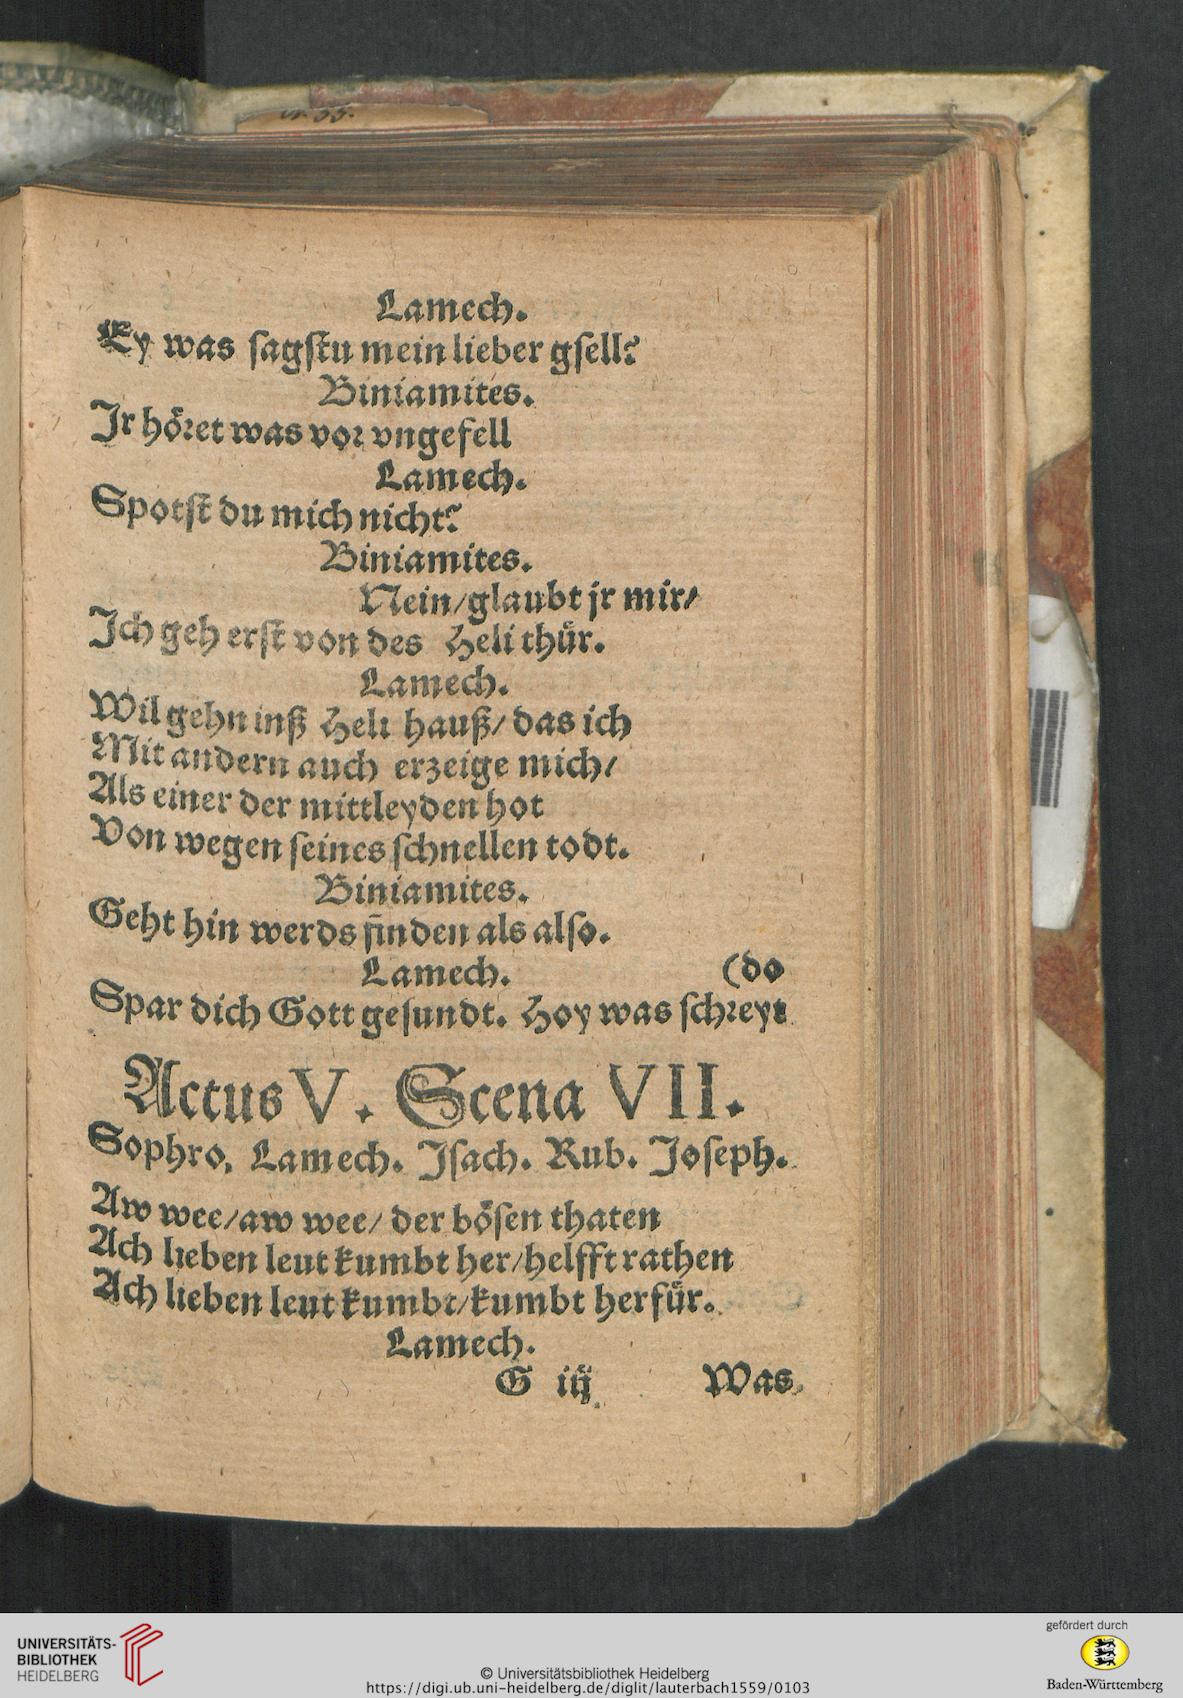 Lamech.
Ey was sagstu mein lieber gsell?
Biniamites.
Jr höret was vor vngefell
Lamech.
Spotst du mich nicht?
Biniamites.
Nein/glaubt jr mir/
Jch geh erst von des Heli thür.
Lamech.
Wil gehn inß Heli hauß/ das ich
Mit andern auch erzeige mich/
Als einer der mittleyden hot
Von wegen seines schnellen todt.
Biniamites.
Geht hin werds finden als also.
Lamech. (do
Spar dich Gott gesundt. Hoy was schreyt
Actus V. Scena VII.
Sophro, Lamech. Jsach. Rub. Joseph.
Aw wee/aw wee/ der bösen thaten
Ach lieben leut kumbt her/helfft rathen
Ach lieben leut kumbt/kumbt herfür.
Lamech.
G iij Was
UNIVERSITÄTS-
BIBLIOTHEK
HEIDELBERG
© Universitätsbibliothek Heidelberg
https://digi.ub.uni-heidelberg.de/diglit/lauterbach1559/0103
gefördert durch
Baden-Württemberg